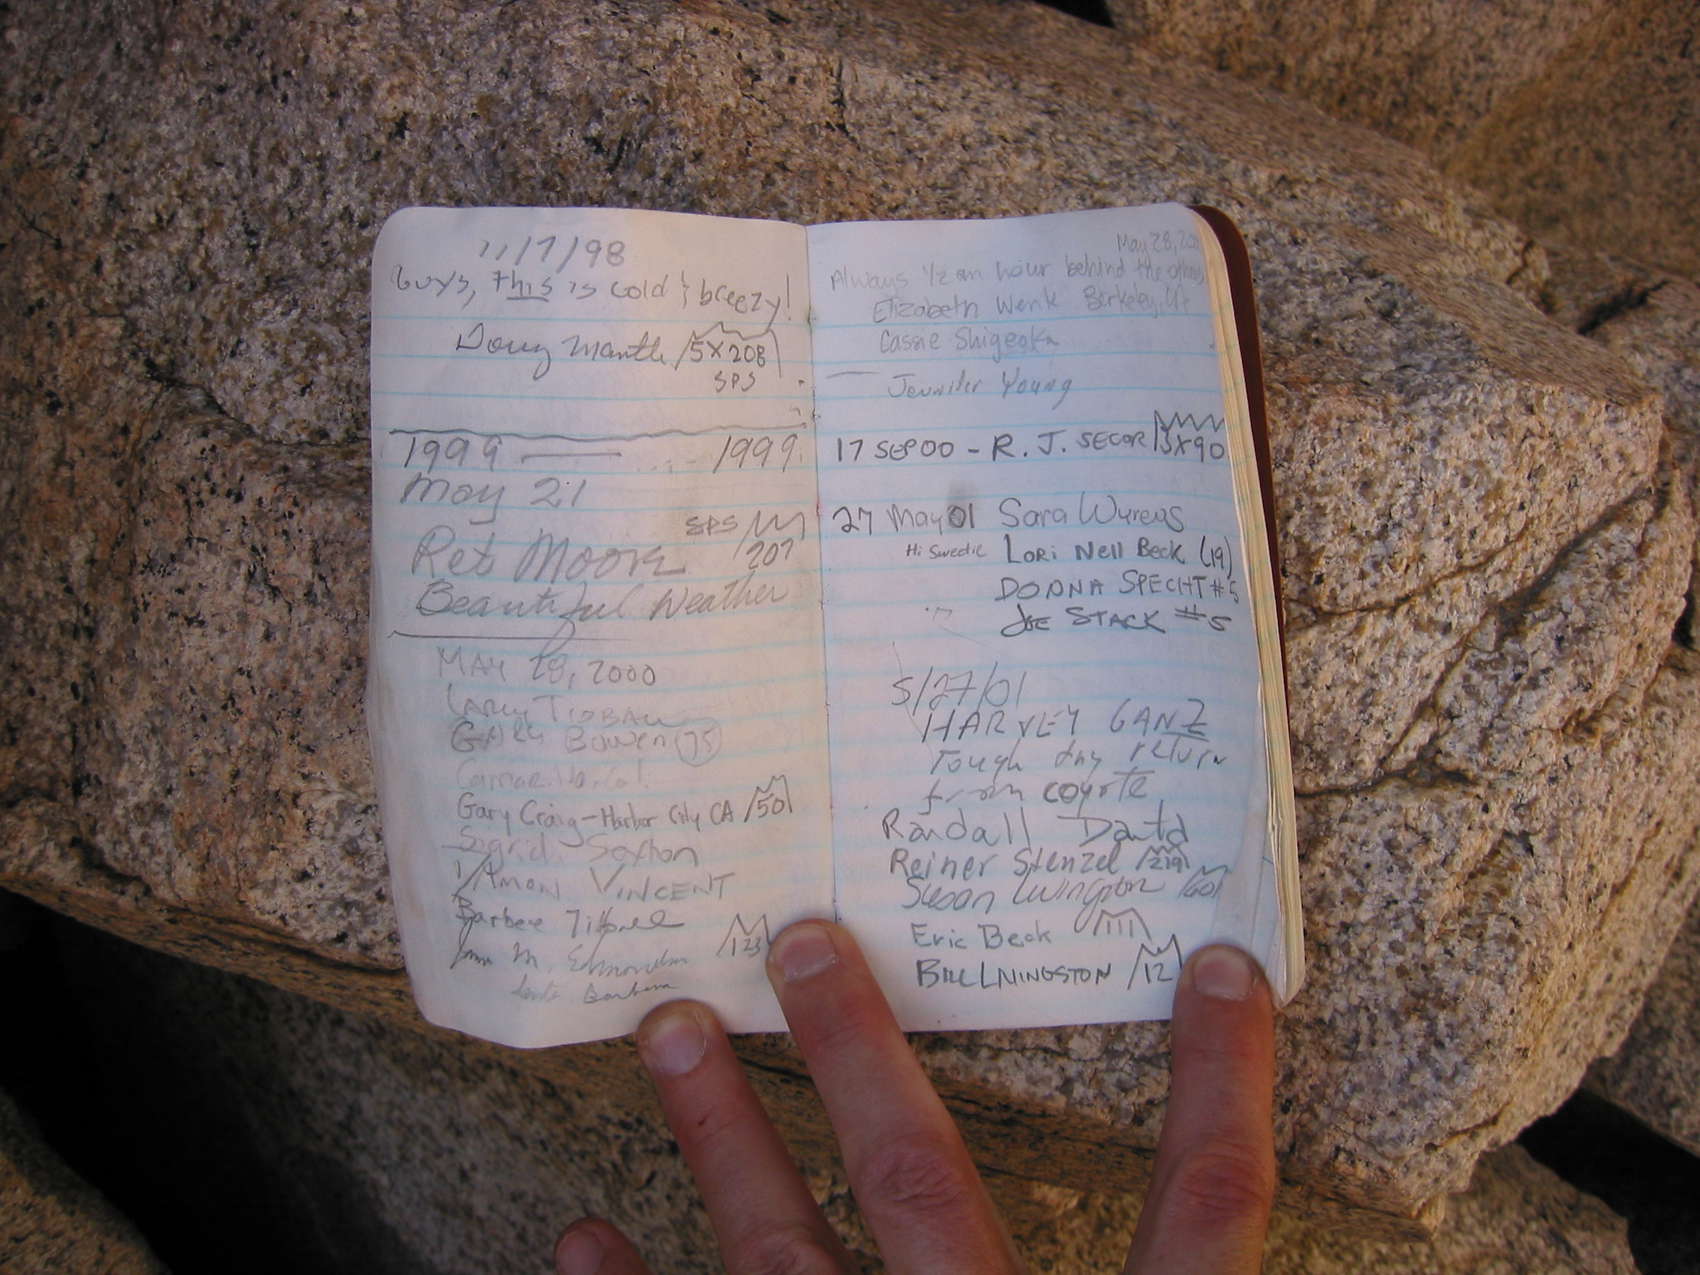 11/7/98
Guys, this is cold & breezy!
Doug Mantle 5X208
SPS
1999 1999
May 21
SPS
Ret Moore 207
Beautiful Weather
MAY 29, 2000
Larry
Gary Bowen 75
Camarillo, Ca!
Gary Craig - Harbor City CA 50
Sigrid Sexton
VINCENT
Barbee
M. Edmondson 123
Santa Barbara
May 28, 20
Always 1/2 an hour behind the others
Elizabeth Wenk Berkeley, CA
Cassie Shigeoka
Jennifer Young
17 SEP 00 - R. J. SECOR 3X90
27 May 01 Sara Wyrens
Hi Swedie Lori Nell Beck (19)
DONNA SPECHT #5
JOE STACK #5
5/27/01
HARVEY GANZ
Tough day return
from coyote
Randall Danta
Reiner Stenzel 219
Susan Livingston 60
Eric Beck
BILL LIVINGSTON 12